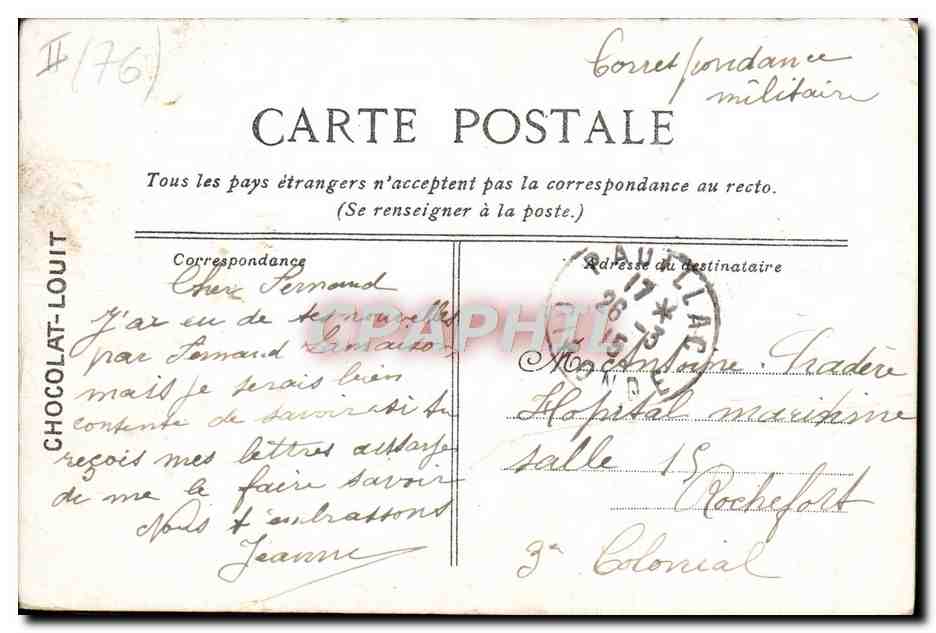 II (76)
Correspondance
militaire
CARTE POSTALE
Tous les pays étrangers n'acceptent pas la correspondance au recto.
(Se renseigner à la poste.)
CHOCOLAT-LOUIT
Correspondance
Cher Fernand
J'ai eu de tes nouvelles
par Fernand Lamaison
mais je serais bien
contente de savoir si tu
reçois mes lettres
de me le faire savoir
Nous t'embrassons
Jeanne
Adresse du destinataire
PAUILLAC
17 *
26 - 3
15
GIRONDE
M. Antoine
Hopital maritime
salle 15
Rochefort
3e Colonial
CPAPHIL